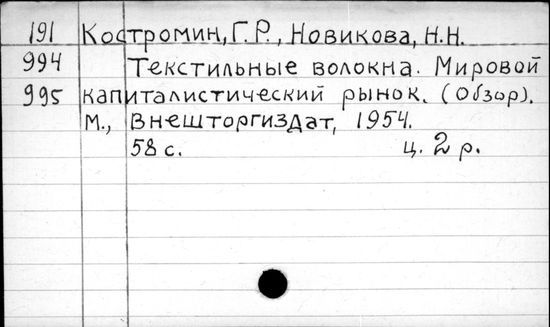 191 Костромин, Г.Р., Новикова, Н.Н.
994 Текстильные волокна. Мировой
995 капиталистический рынок. (Обзор).
М., Внешторгиздат, 1954.
58 с. ц. 2 р.